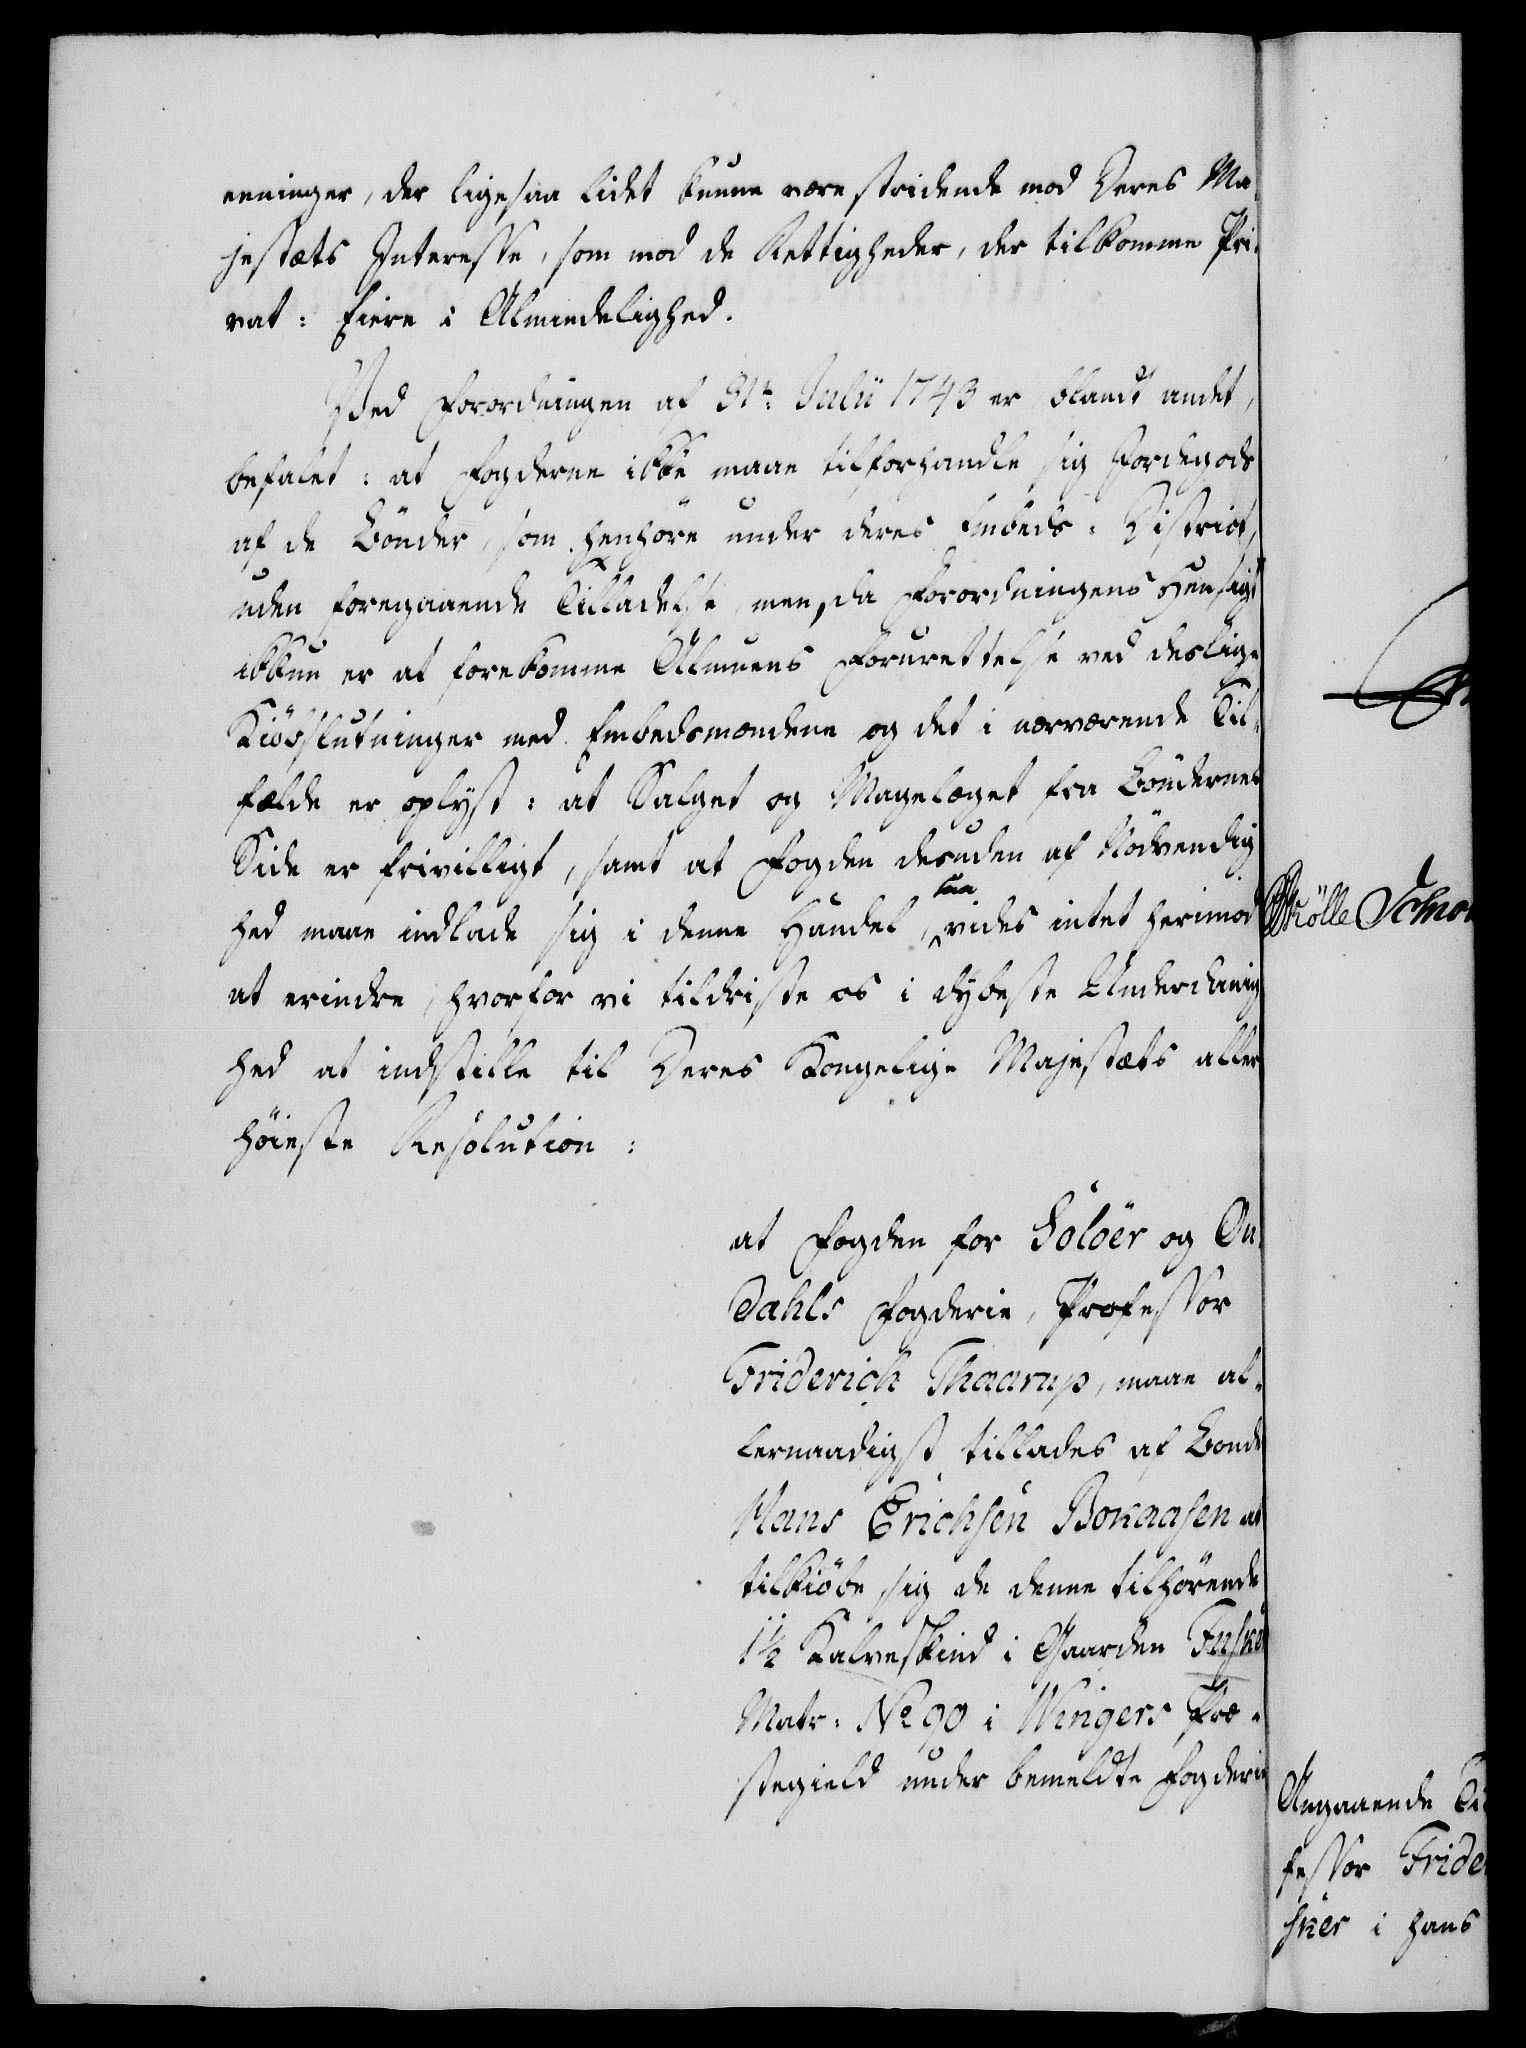 eeninger, der ligesaa lidet kunne være stridende mod Deres Ma-
jestæts Interesse, som mod de Rettigheder, der tilkomme Pri-
vat-Eiere i Almindelighed.
Ved Forordningen af 31te Julii 1743 er blandt andet,
befalet: at Fogderne ikke maae tilforhandle sig Jordegods
af de Bönder, som henhöre under deres Embeds-District,
uden foregaaende Tilladelse, men, da Forordningens Hensigt
ikkun er at forekomme Almuens Forurettelse ved deslige
Kiöbslutninger med Embedsmændene og det i nærværende Til-
fælde er oplyst: at Salget og Magelæget fra Böndernes
Side er frivilligt, samt at Fogden desuden af Nödvendig
hed maae indlade sig i denne Handel, saa vides intet herimod
at erindre, hvorfor vi tildriste os i dybeste Underdanig
hed at indstille til Deres Kongelige Majestæts aller
höieste Resolution:
at Fogden for Solöer og Ou-
dahls Fogderie, Professor
Friderich Thaarup, maae al-
lernaadigst tillades af Bonde
Hans Erichsen Bonaasen at
tilkiöbe sig de denne tilhörende
1½ Kalveskind i Gaarden
Matr: No 90 i Wingers Præ-
stegield under bemeldte Fogderie
Mölle
Angaaende
fessor Fride
i hans